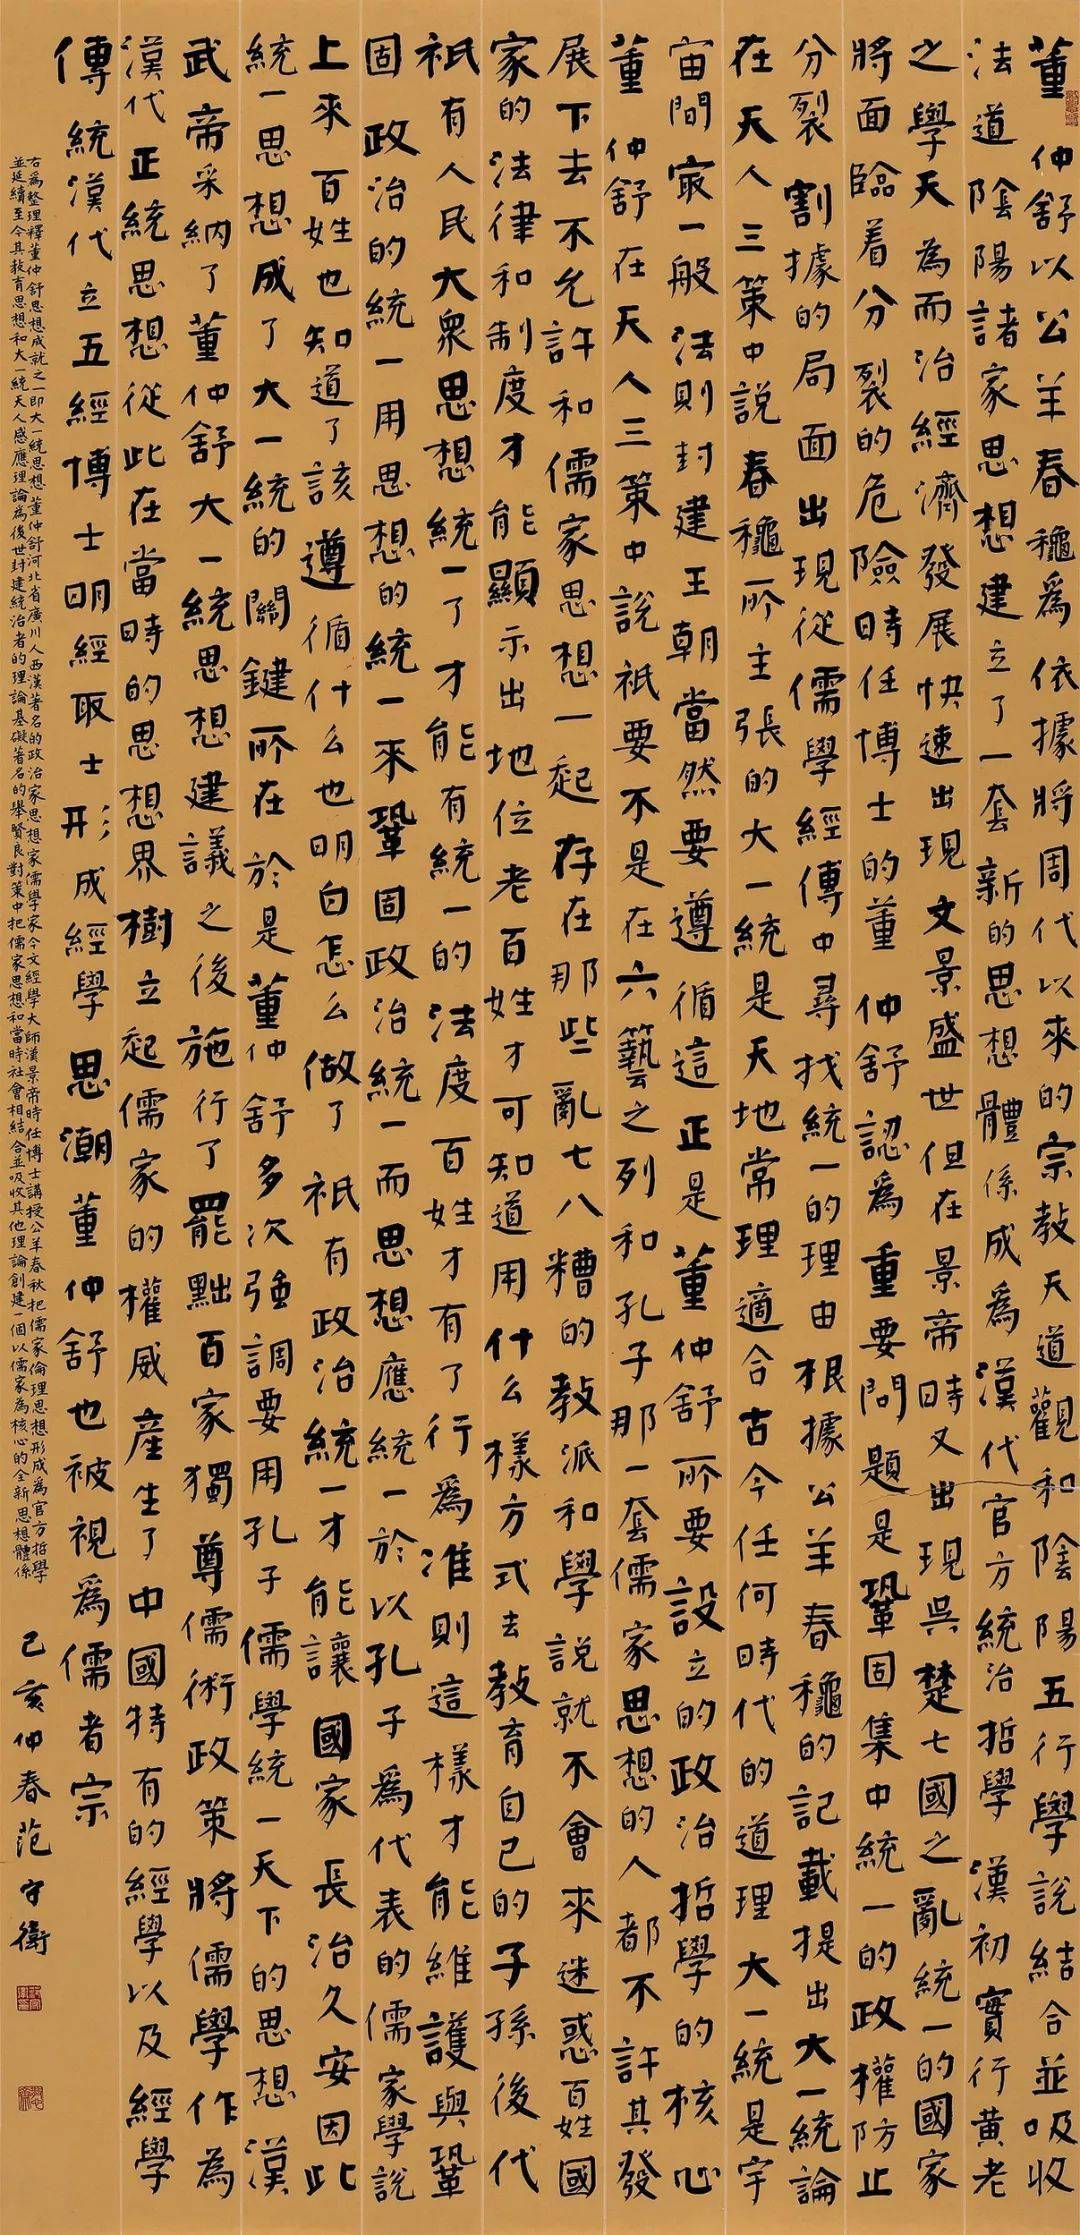 董仲舒以公羊春龝爲依據將周代以來的宗教天道觀和陰陽五行學説結合並吸收
法道陰陽諸家思想建立了一套新的思想體係成爲漢代官方統治哲學漢初實行黄老
之學天為而治經濟發展快速出現文景盛世但在景帝时又出現吴楚七國之亂統一的國家
將面臨着分裂的危險時任博士的董仲舒認爲重要問題是鞏固集中統一的政權防止
分裂割據的局面出現從儒學經傳中尋找統一的理由根據公羊春龝的記載提出大一統論
在天人三策中説春龝所主張的大一統是天地常理適合古今任何時代的道理大一統是宇
宙間冣一般法則封建王朝當然要遵循這正是董仲舒所要設立的政治哲學的核心
董仲舒在天人三策中説衹要不是在六藝之列和孔子那一套儒家思想的人都不許其發
展下去不允許和儒家思想一起存在那些亂七八糟的教派和學説就不會來迷惑百姓國
家的法律和制度才能顯示出地位老百姓才可知道用什么樣方式去教育自己的子孫後代
衹有人民大衆思想統一了才能有統一的法度百姓才有了行爲准則這樣才能維護與鞏
固政治的統一用思想的統一來鞏固政治統一而思想應統一於以孔子爲代表的儒家學説
上來百姓也知道了該遵循什么也明白怎么做了衹有政治統一才能讓國家長治久安因此
統一思想成了大一統的關鍵所在於是董仲舒多次强調要用孔子儒學統一天下的思想漢
武帝采納了董仲舒大一統思想建議之後施行了罷黜百家獨尊儒術政策將儒學作為
漢代正統思想從此在當時的思想界樹立起儒家的權威産生了中國特有的經學以及經學
傳統漢代立五經博士明經取士形成經學思潮董仲舒也被視爲儒者宗
右爲整理釋董仲舒思想成就之一即大一統思想董仲舒河北省廣川人西漢著名的政治家思想家儒學家今文經學大師漢景帝時任博士講授公羊春秋把儒家倫理思想形成爲官方哲學
並延續至今其教育思想和大一統天人感應理論為後世封建統治者的理論基礎著名的舉賢良對策中把儒家思想和當時社會相結合並吸收其他理論創建一個以儒家為核心的全新思想體係
己亥仲春范守衛